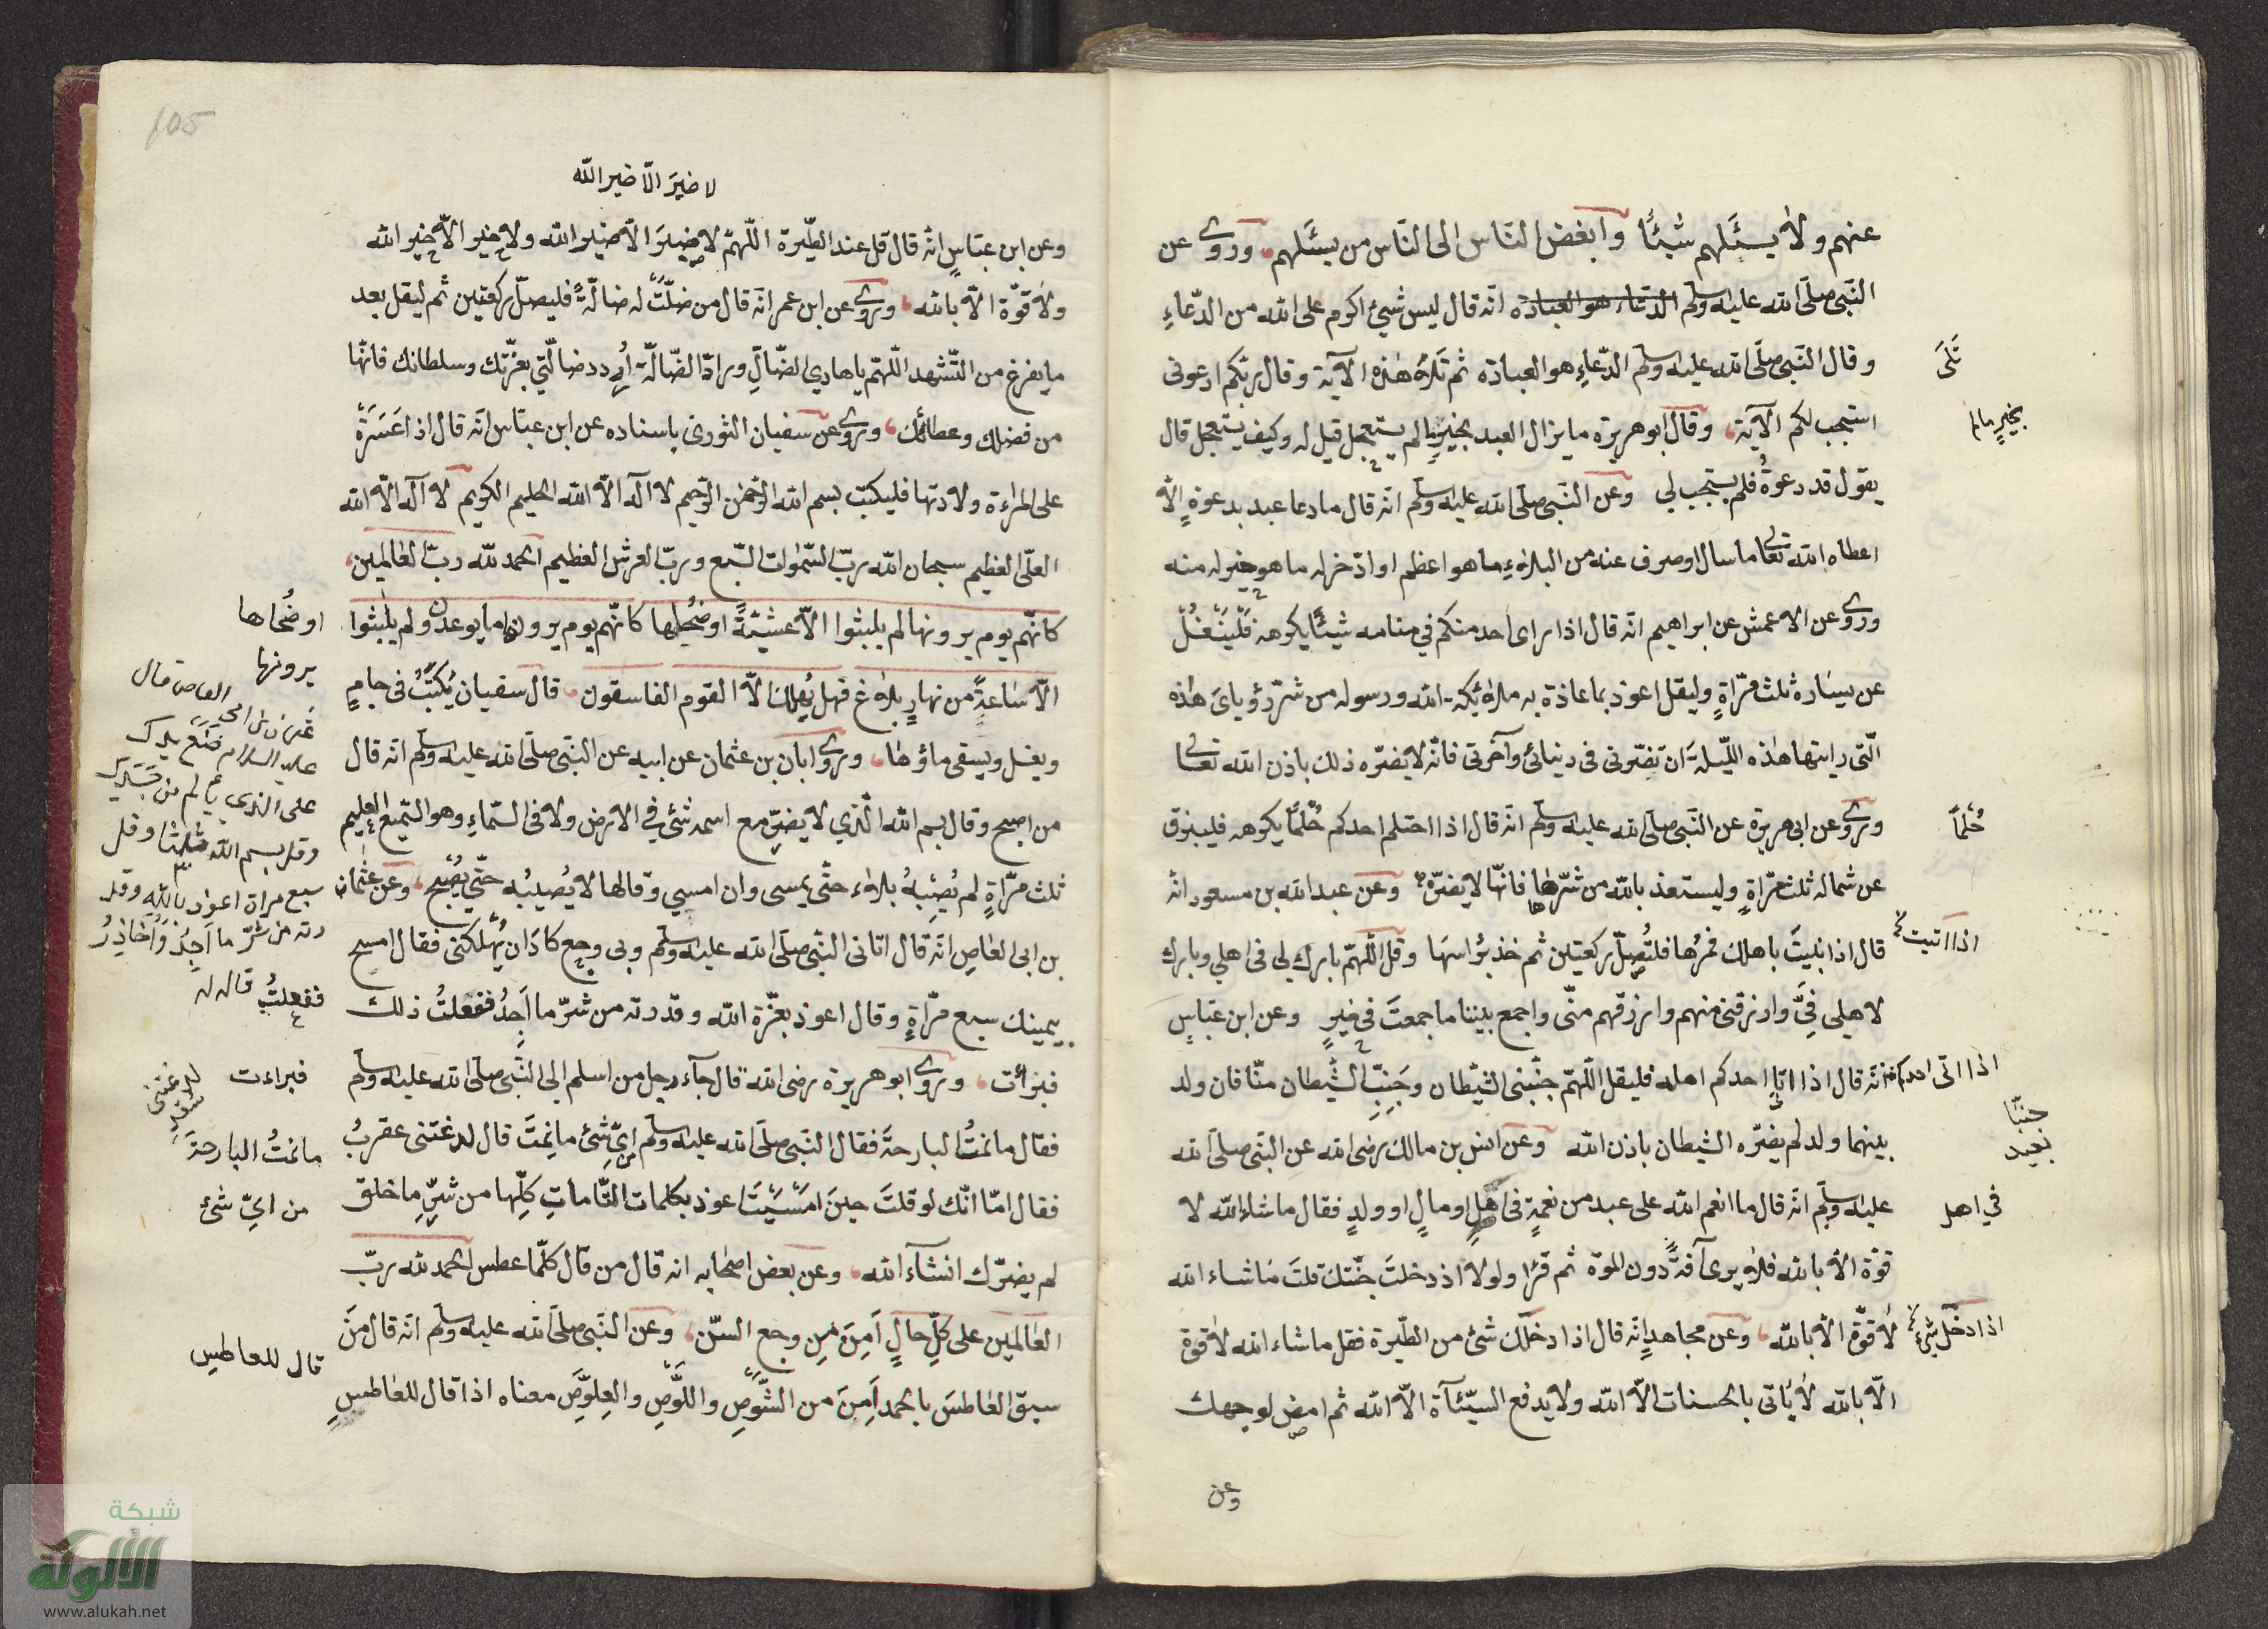 عنهم ولا يسئلهم شيئًا وابغض الناس الى الناس من يسئلهم وروى عن
النبى صلى الله عليه وسلم الدعاء هو العبادة انه قال ليس شئ اكرم على الله من الدعاءِ
وقال النبى صلى الله عليه وسلم الدعاءِ هو العبادة ثم تلاهُ هذه الآية وقال ربكم ادعونى
تَلَى
استجب لكم الآية وقال ابو هريرة ما يزال العبد بخيرٍ مالم يستعجل قيل له وكيف يستعجل قال
بخيرٍ مالم
يقول قد دعوةُ فلم يستجب لى وعن النبى صلى الله عليه وسلم انه قال ما دعا عبد بدعوةٍ الّا
اعطاه الله تعالى ما سال او صرف عنه من البلاءِ ما هو اعظم او ادّخر له ما هو خير له منه
وروى عن الاعمش عن ابراهيم انه قال اذا راى احد منكم في منامه شيئًا يكرهه فليتفل
عن يساره ثلث مرّاةٍ وليقل اعوذ بما عاذة به ملائكة الله ورسوله من شرّ رؤياىَ هذه
الّتى رايتها هذه الليلة ان تضرّونى فى دينائى وآخرتى فانّه لا يضرّه ذلك باذن الله تعالى
وروى عن ابى هريرة عن النبى صلى الله عليه وسلم انه قال اذا احتلم احدكم حُلمًا يكرهه فليبزق
حُلمًا
عن شماله ثلث مرّاةٍ وليستعذ بالله من شرّها فانّها لا يضرّه وعن عبد الله بن مسعود انه
قال اذا بليتَ باهلك فمرُها فلتُصلّ ركعتين ثم خذ برؤاسها وقل اللّهمّ بارك لى فى اهلي وبارك
اذا اتيت
لاهلى فِىَّ وارزقنى منهم وارزقهم منّى واجمع بيننا ما جمعتَ فى خيرٍ وعن ابن عبّاسٍ
انّه قال اذا اتا احدكم اهله فليقل اللّهمّ جنّبنى الشيطان وجَنِّبِ الشيطان منّا فان ولد
اذا اتى احدكم
جنبّا
بعيد
بينهما ولد لم يضرّه الشيطان باذن الله وعن انس بن مالك رضى الله عن النبى صلى الله
عليه وسلم انه قال ما انعم الله على عبد من نعمةٍ فى اهلٍ او مالٍ او ولدٍ فقال ما شاء الله لا
في اهل
قوّة الّا بالله فلا يرى آفةً دون الموة ثم قرٔا ولولا اذ دخلتَ جنّتك قلتَ ما شاء الله
لا قوّة الّا بالله وعن مجاهدٍ انّه قال اذا دخلك شئ من الطّيرة فقل ما شاء الله لا قوة
اذا دخل شئ
الّا بالله لا ياتى بالحسنات الّا الله ولا يدفع السيّئآة الّا الله ثم امض لوجهك
وعن
105
لا ضيرَ الّا ضير الله
وعن ابن عبّاسٍ انه قال قل عند الطّيرة اللّهمّ لا ضيرَ الّا ضير الله ولا خير الّا خير الله
ولا قوّة الّا بالله وروى عن ابن عمر انّه قال من ضلّتْ له ضالّةً فليصلّ ركعتين ثم ليقل بعد
ما يفرغ من التّشهد اللّهمّ يا هادى الضّالِّ ورادّ الضّالّة اُردد ضالّتي بعزّتك وسلطانك فانّها
من فضلك وعطائك وروى عن سفيان الثورى باسناده عن ابن عبّاس انّه قال اذا عَسَرَةْ
على المراءة ولادتها فليكتب بسم الله الرّحمن الرّحيم لا اله الّا الله الحليم الكريم لا اله الّا الله
العلّى العظيم سبحان الله ربّ السّموات السّبع وربّ العرش العظيم الحمد لله ربّ العالمين
كانّهم يوم يرونها لم يلبثوا الّا عشيّةً او ضحيها كانّهم يوم يرون ما يوعدون ولم يلبثوا
او ضُحاها
يرونها
الّا ساعةً من نهارٍ بلاغ فهل يُهلك الّا القوم الفاسقون قال سفيان يُكتَبُ فى جامٍ
ويغسل ويسقى ماؤها وروى ابان بن عثمان عن ابيه عن النبى صلى الله عليه وسلم انّه قال
من اصبح وقال بسم الله الّذي لا يضرّ مع اسمه شئ في الارض ولا فى السّماءِ وهو السّميع العليم
ثلث مرّاةٍ لم يُصِبهُ بلاء حتّى يمسى وان امسي وقالها لا يُصيبُه حتّى يُصْبِحَ وعن عثمان
بن ابى العاصِ انّه قال اتانى النّبى صلى الله عليه وسلم وبى وجع كادَ ان يُهلكنى فقال امسح
بيمينك سبع مرّاةٍ وقال اعوذ بعزّة الله وقدرته من شرّ ما اَجِدُ ففعلتُ ذلك
عليه السلام ضَع يدك
على الذى يألم من جسدك
وقل بسم الله ثلثًا وقل
سبع مراة اعوذ بالله وقد
رته من شرّ ما اَجِدُ واُحاذِرُ
ففعلتُ قال له
فبرأت وروى ابو هريرة رضى الله قال جآء رجل من اسلم الى النّبى صلى الله عليه وسلم
فبراءت
فقال ما نمتُ البارحة فقال النّبى صلى الله عليه وسلم اىّ شئ ما نِمتَ قال لدغتنى عقربُ
ما نمتُ البارحة
فقال امّا انّك لو قلتَ حينَ امسَيْتَ اعوذ بكلمات التّاماتِ كلّها من شرّ ما خلق
من اىّ شئ
لم يضرّك انشآء الله وعن بعض اصحابه انه قال من قال كلّما عطس الحمد لله ربّ
العالمين على كلّ حالٍ اَمِنَ مِن وجع السّن وعن النّبى صلى الله عليه وسلم انّه قال مَن
سبق العاطسَ بالحمد اَمِنَ من الشَّوصِ واللّوصِ والعِلوّصِ معناه اذا قال للعاطسِ
قال للعاطس
شبكة
الألوكة
www.alukah.net